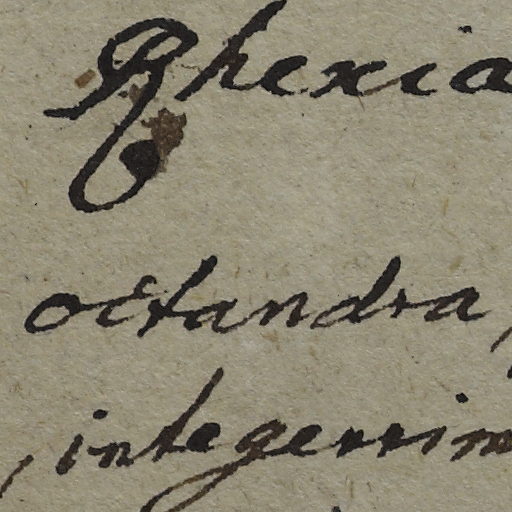 Rhexia
octandra,
, integerrim